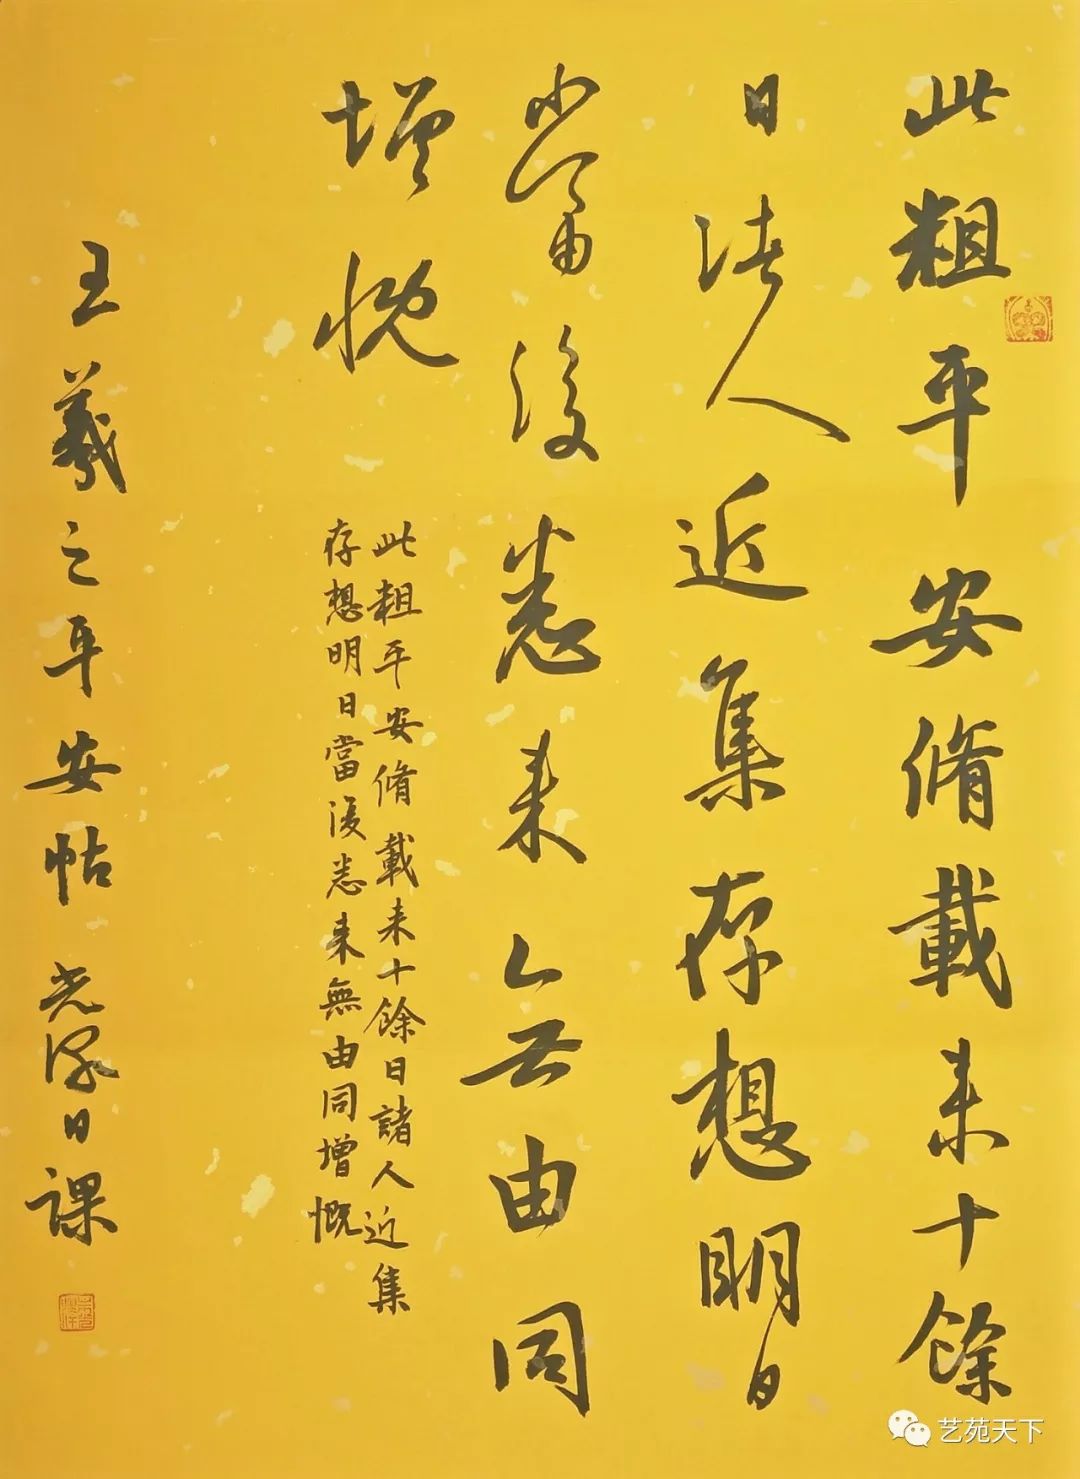 此粗平安脩載来十餘
日諸人近集存想明日
當復悉来無由同
增慨
此粗平安脩載来十餘日諸人近集
存想明日當復悉来無由同增慨
王羲之平安帖 光 日课
艺苑天下